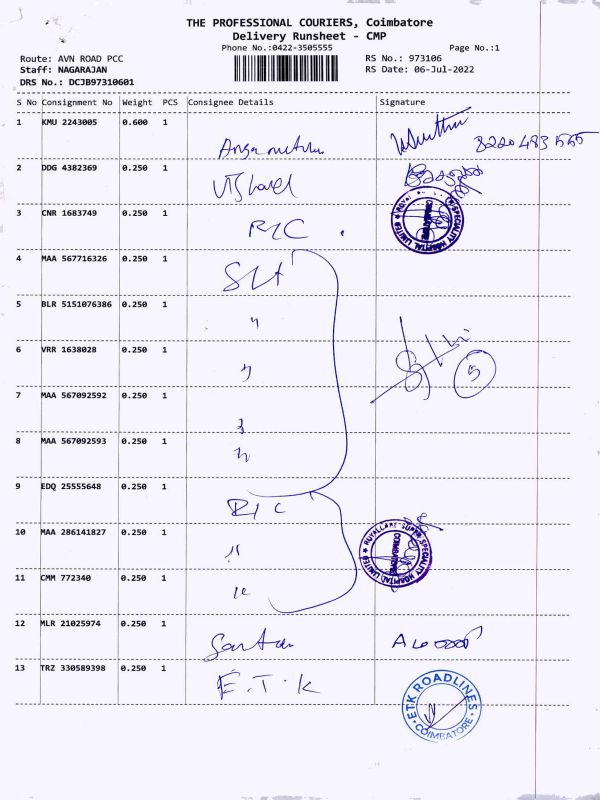 THE PROFESSIONAL COURIERS, Coimbatore
Delivery Runsheet - CMP
Phone No.:0422-3505555
Page No.:1
Route: AVN ROAD PCC
RS No.: 973106
Staff: NAGARAJAN
RS Date: 06-Jul-2022
DRS No.: DCJB97310601
S No Consignment No Weight PCS Consignee Details Signature
1 KMU 2243005 0.600 1
2 DDG 4382369 0.250 1
3 CNR 1683749 0.250 1
4 MAA 567716326 0.250 1
5 BLR 5151076386 0.250 1 "
6 VRR 1638028 0.250 1 "
5
7 MAA 567092592 0.250 1
8 MAA 567092593 0.250 1
9 EDQ 25555648 0.250 1
10 MAA 286141827 0.250 1 "
11 CMM 772340 0.250 1 "
12 MLR 21025974 0.250 1
13 TRZ 330589398 0.250 1 E.T.K
ETK ROADLINES
COIMBATORE